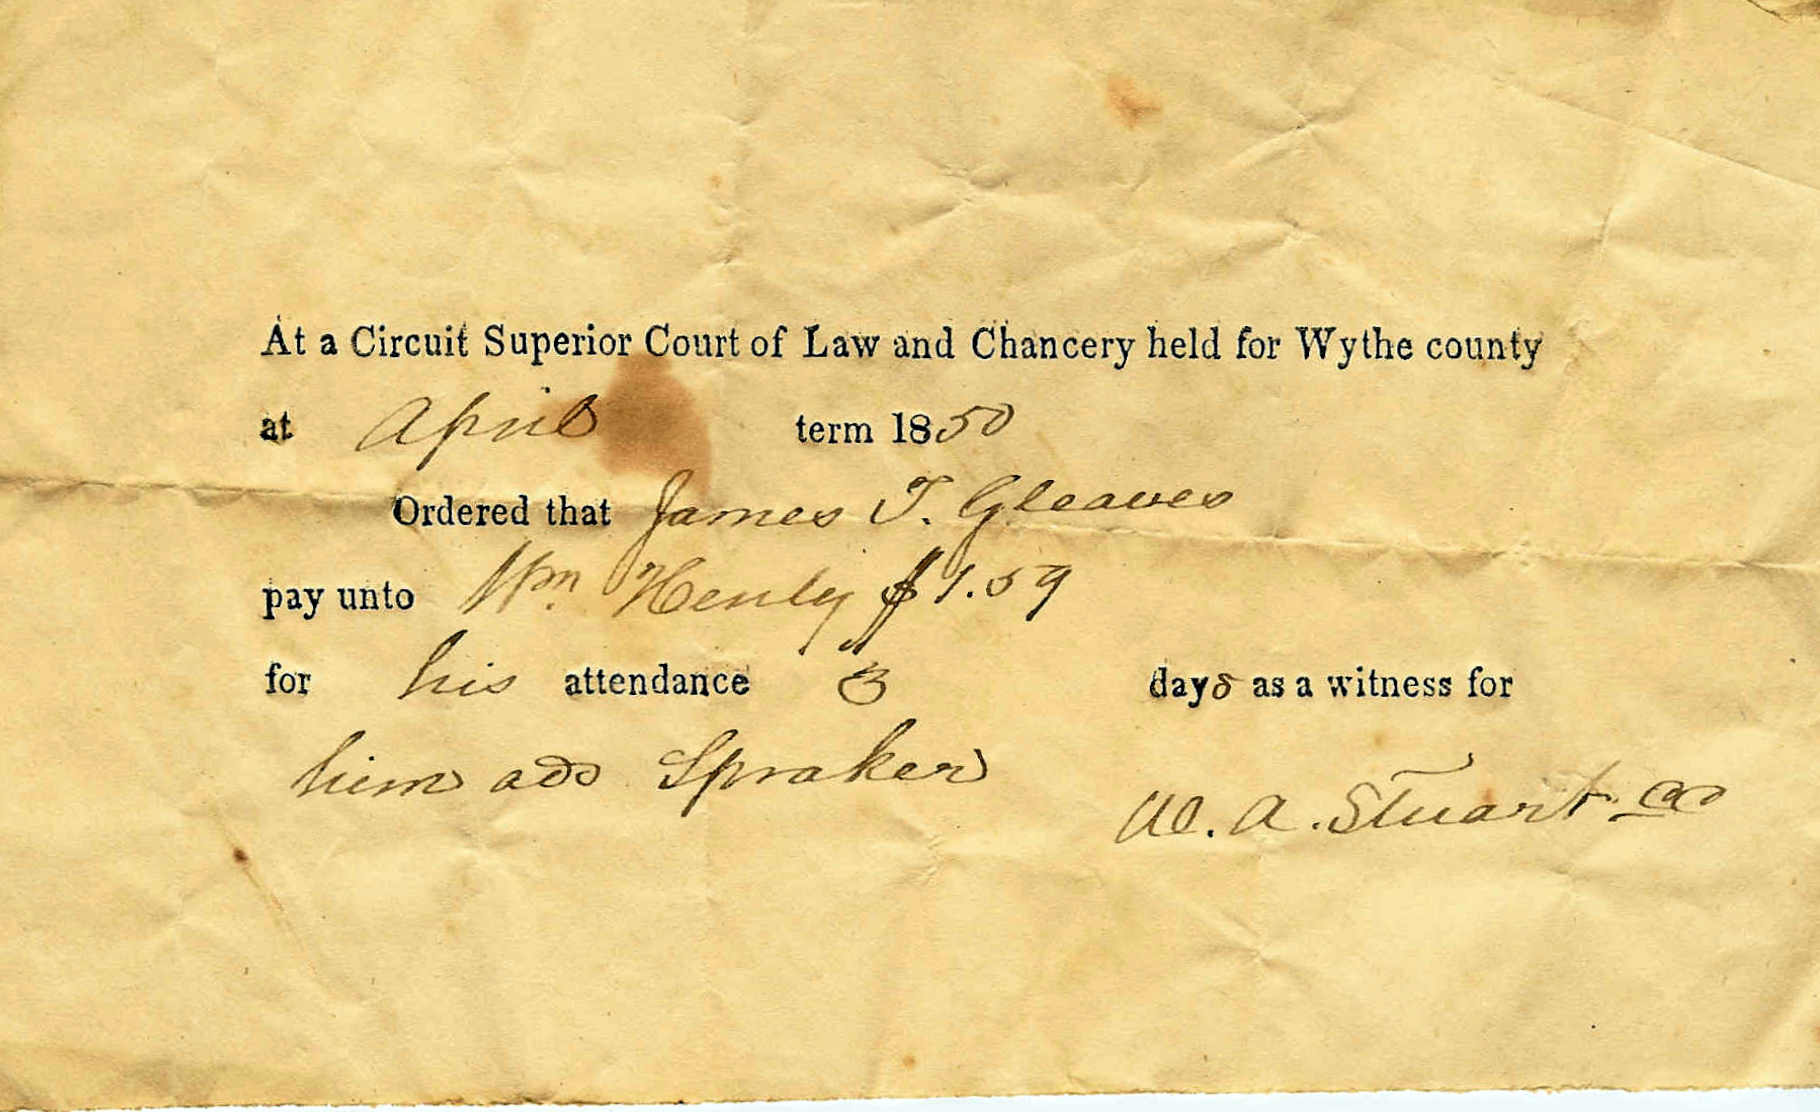 At a Circuit Superior Court of Law and Chancery held for Wythe county
at April term 1850
Ordered that James T. Gleaves
pay unto Wm. Henly $1.59
for his attendance 3 days as a witness for
him ads Spraker
W. A. Stuart